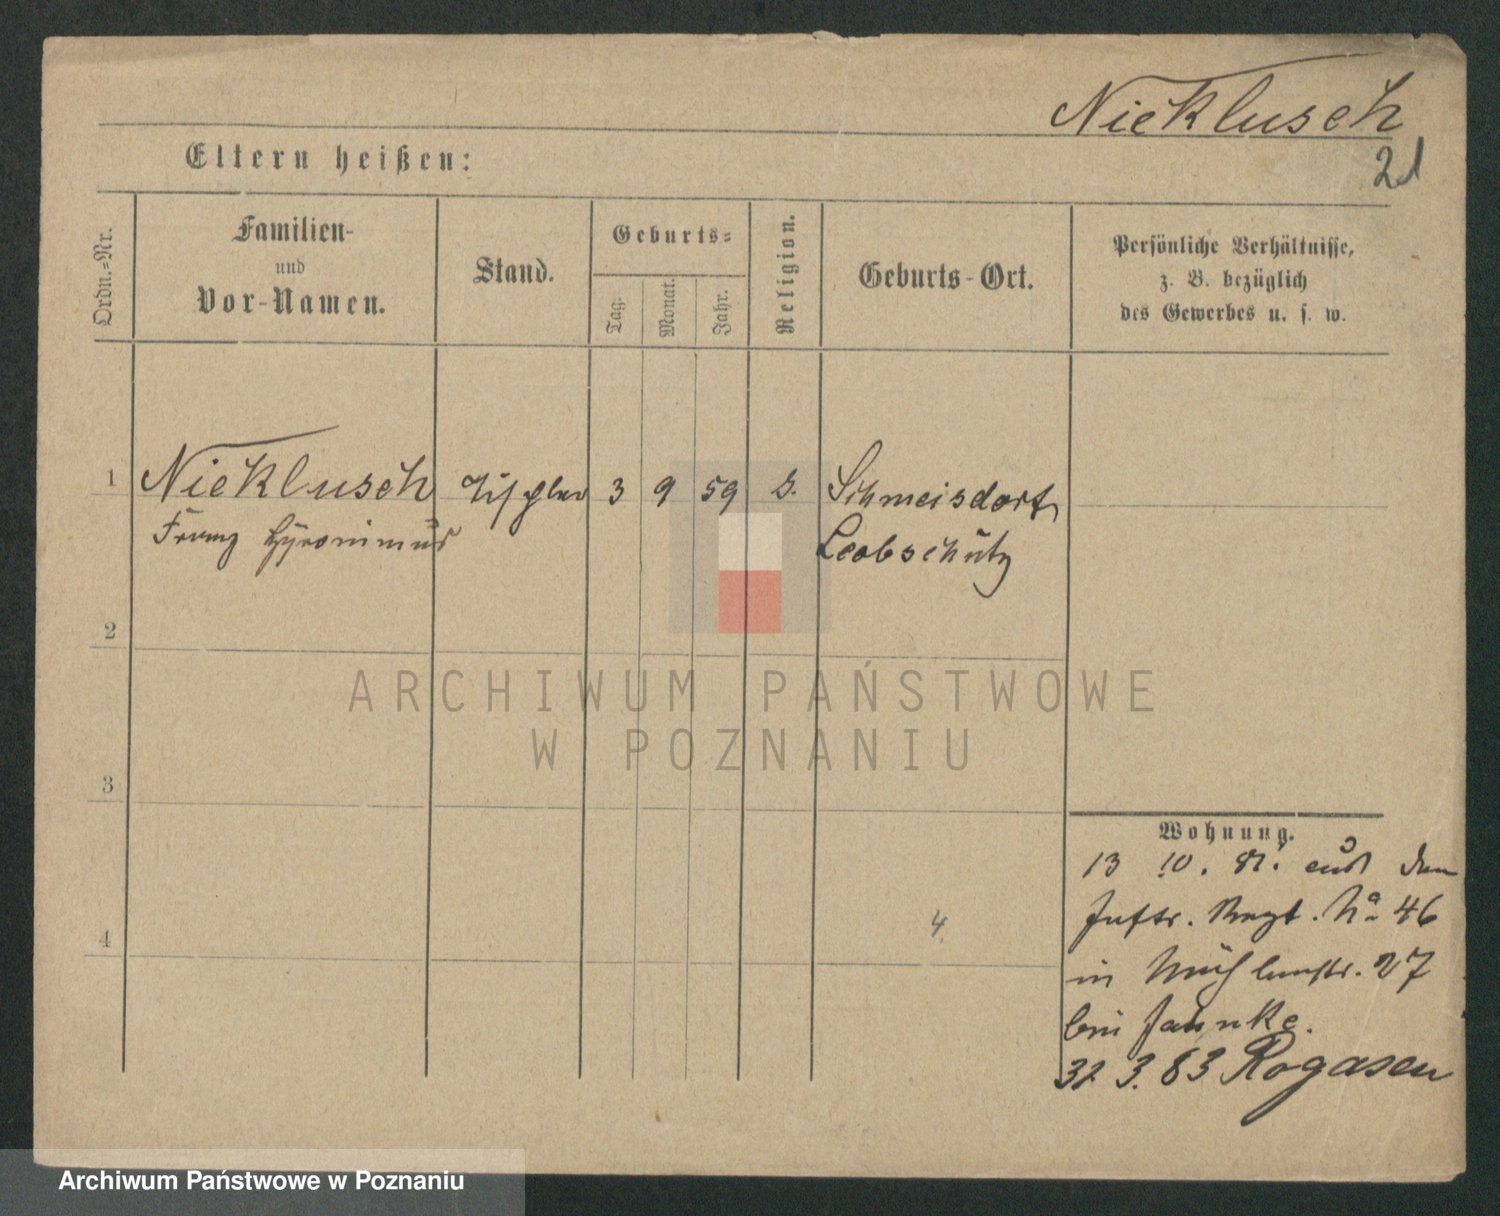 Nieklusch
21
Eltern heißen:
Ordn.=Nr.
Familien-
und
Vor-Namen.
Stand.
Geburts=
Tag.
Monat.
Jahr.
Religion.
Geburts-Ort.
Persönliche Verhältnisse,
z. B. bezüglich
des Gewerbes u. s. w.
1
Nieklusch
Tischler
3
9
59
Schmeisdorf
Franz Hyronimus
Leobschütz
2
ARCHIWUM PAŃSTWOWE
W POZNANIU
3
Wohnung.
13 10. 81. aus dem
4
4.
Inftr. Regt. No 46
in Mühlenstr. 27
bei Jahnke.
31 3. 83 Rogasen
Archiwum Państwowe w Poznaniu